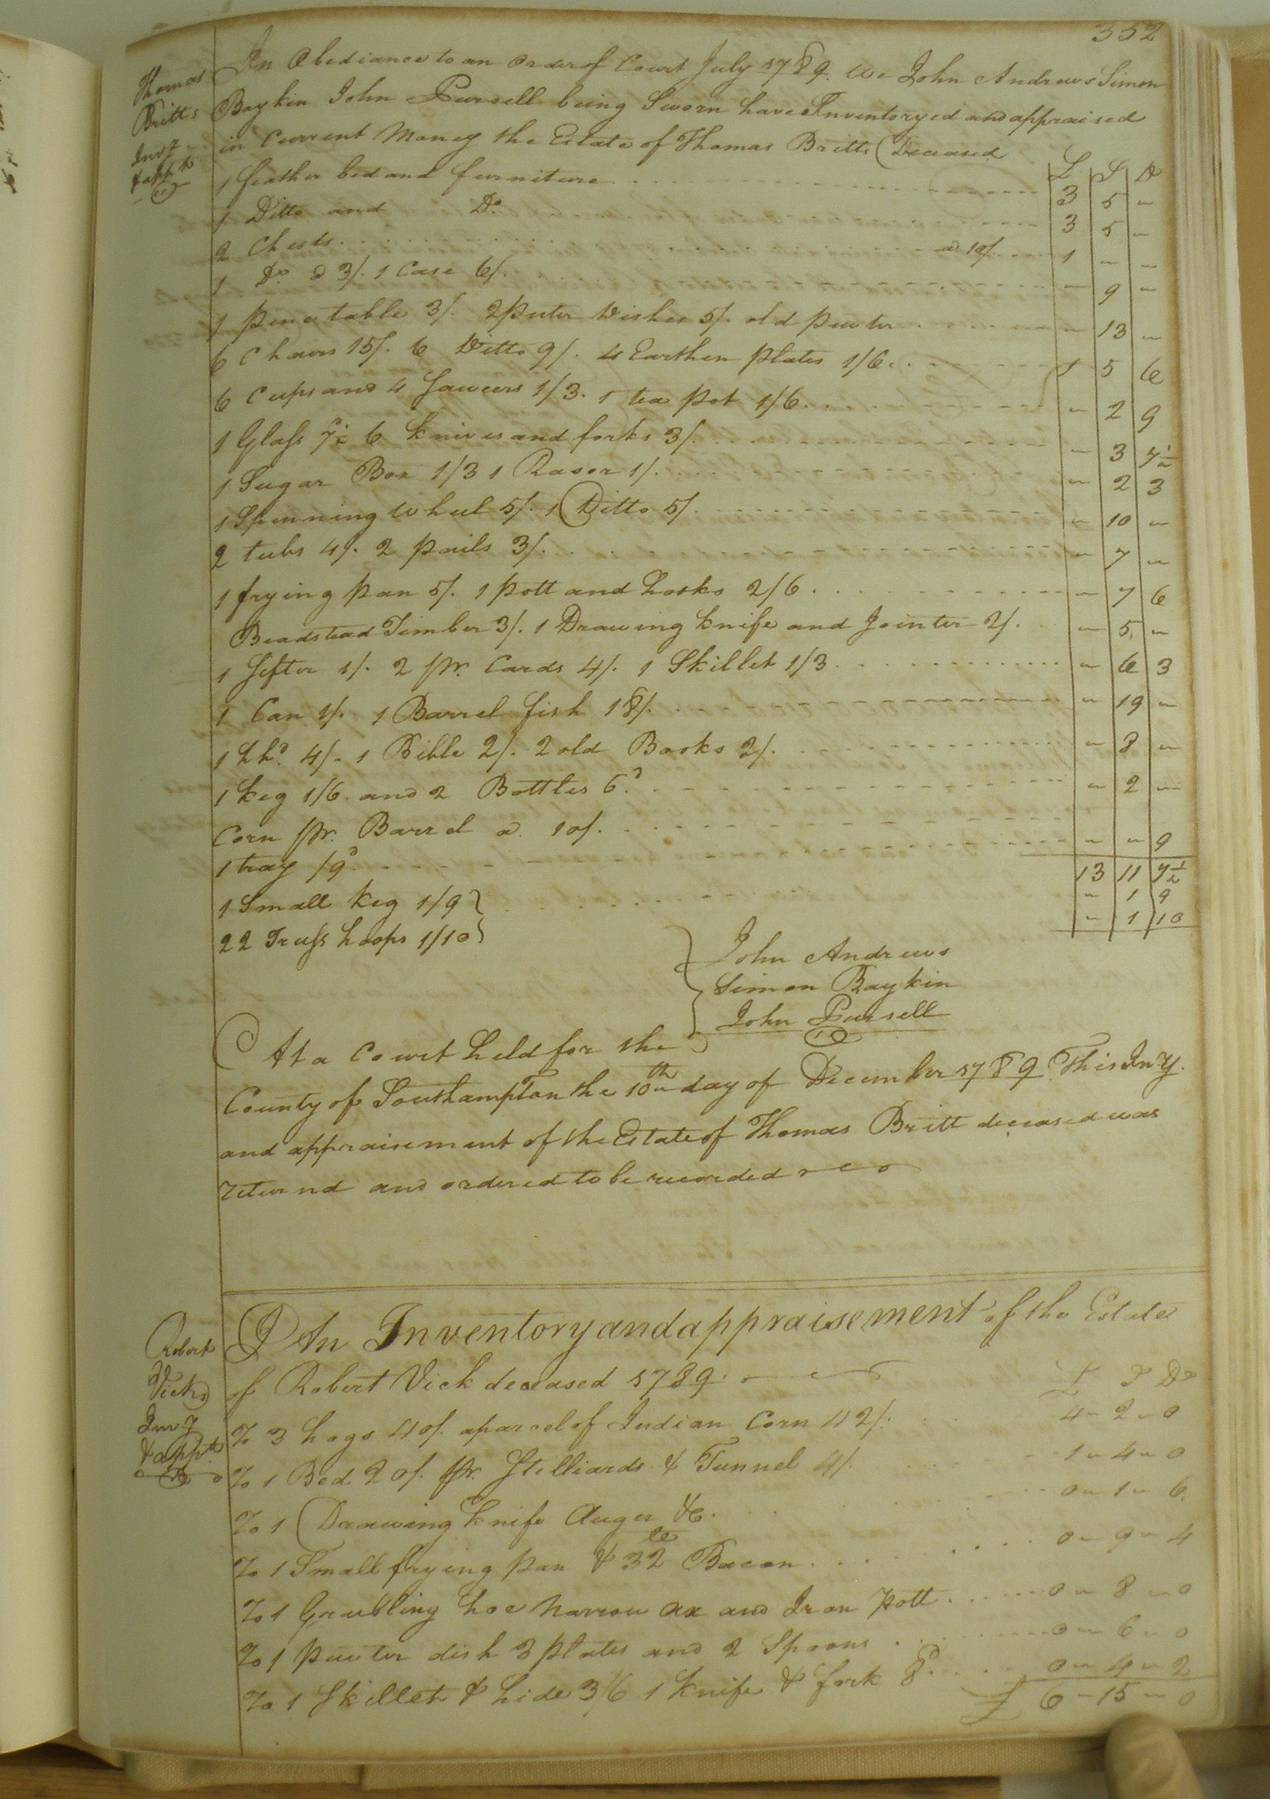 352
Thomas
Britts
Invy
& appt
In Obediance to an order of Court July 1789. We John Andrews Simon
Baykin John Pursell being Sworn have Inventoryed and appraised
in Current Money the Estate of Thomas Britts Deceased
£ S D
1 feather bed and furniture 3 5 -
1 Ditto and Do. 3 5 -
2 Chests a 10/. 1 - -
1 Do a 3/. 1 Case 6/. - 9 -
1 pine table 3/. 2 puter dishes 5/. old pewter - 13 -
6 Chairs 15/. 6 Ditto 9/. 4 Earthen plates 1/6. 1 5 6
6 Cups and 4 Sawcers 1/3. 1 tea pot 1/6. - 2 9
1 Glass 7½ 6 knives and forks 3/. - 3 7½
1 Sugar Box 1/3 1 Rasor 1/. - 2 3
1 Spinning wheel 5/. 1 Ditto 5/. - 10 -
2 tubs 4/. 2 pails 3/. - 7 -
1 frying pan 5/. 1 pott and hooks 2/6. - 7 6
Beadstead Timber 3/. 1 Drawing knife and Jointer 2/. - 5 -
1 Sifter 1/. 2 pr. Cards 4/. 1 Skillet 1/3. - 6 3
1 Can 1/. 1 Barrel fish 18/. - 19 -
1 hhd. 4/. 1 Bible 2/. 2 old Books 2/. - 8 -
1 keg 1/6. and 2 Bottles 6d. - 2 -
Corn pr. Barrel a 10/.
1 tray /9d. - - 9
13 11 7½
1 Small keg 1/9 } - 1 9
22 Truss hoops 1/10 } - 1 10
John Andrews
Simon Baykin
John Pursell
At a Court held for the
County of Southampton the 10th day of December 1789 This Invy.
and appraisement of the Estate of Thomas Britt deceased was
returnd and ordered to be recorded
Robert
Vick
Invy
& appt
An Inventory and appraisement of the Estate
of Robert Vick deceased 1789.
£ S D
To 3 hogs 40/. a parcel of Indian Corn 42/. 4 - 2 - 0
To 1 Bed 20/. pr. Stilliards & Tunnel 4/. 1 - 4 - 0
To 1 Drawing knife Auger &c. 0 - 1 - 6
To 1 Small frying pan & 32 lb Bacon 0 - 9 - 4
To 1 Grubling hoe narrow ax and Iron Pott 0 - 8 - 0
To 1 pewter dish 3 plates and 2 Spoons 0 - 6 - 0
To 1 Skillet & hide 3/6 1 knife & fork 8d. 0 - 4 - 2
£ 6 - 15 - 0